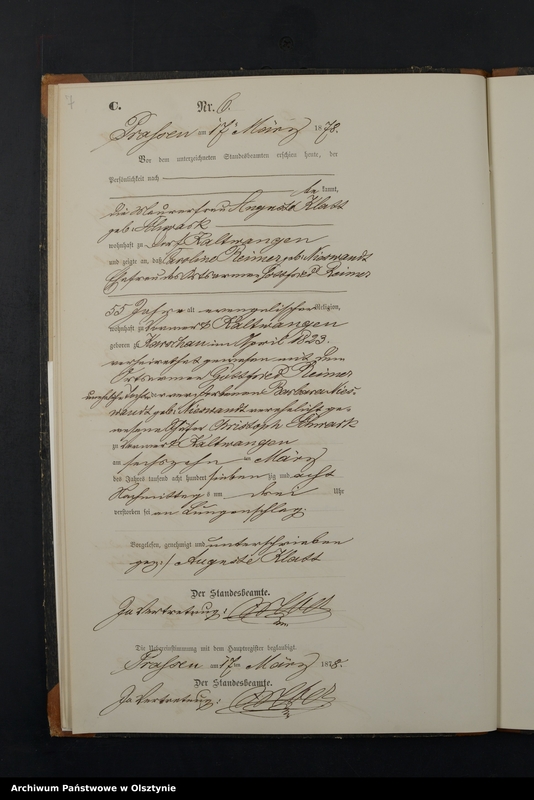 7
C.
Nr. 6.
Prassen am 17 ten März 1878.
Vor dem unterzeichneten Standesbeamten erschien heute, der
Persönlichkeit nach
be kannt,
die Maurerfrau Auguste Klatt
geb. Schwark
wohnhaft zu Dorf Kaltwangen
und zeigte an, daß Caroline Reimer geb. Nieswandt
Ehefrau des Ortsarmen Gottfried Reimer
55 Jahre alt evangelischer Religion,
wohnhaft zu Kaltwangen
geboren zu Karschau im April 1823.
verheirathet gewesen mit dem
Ortsarmen Gottfried Reimer
uneheliche Tochter der verstorbenen Barbara Nies-
wandt geb. Nieswandt verehelicht ge-
wesene Christoph Schwark
zu Kaltwangen
am sechszehn ten März
des Jahres tausend acht hundert sieben zig und acht
Nachmittag s um drei Uhr
verstorben sei an Lungenschlag.
Vorgelesen, genehmigt und unterschrieben
gez: / Auguste Klatt
Der Standesbeamte.
In Vertretung:
Die Uebereinstimmung mit dem Hauptregister beglaubigt.
Prassen am 17 ten März 1878.
Der Standesbeamte.
In Vertretung:
Archiwum Państwowe w Olsztynie